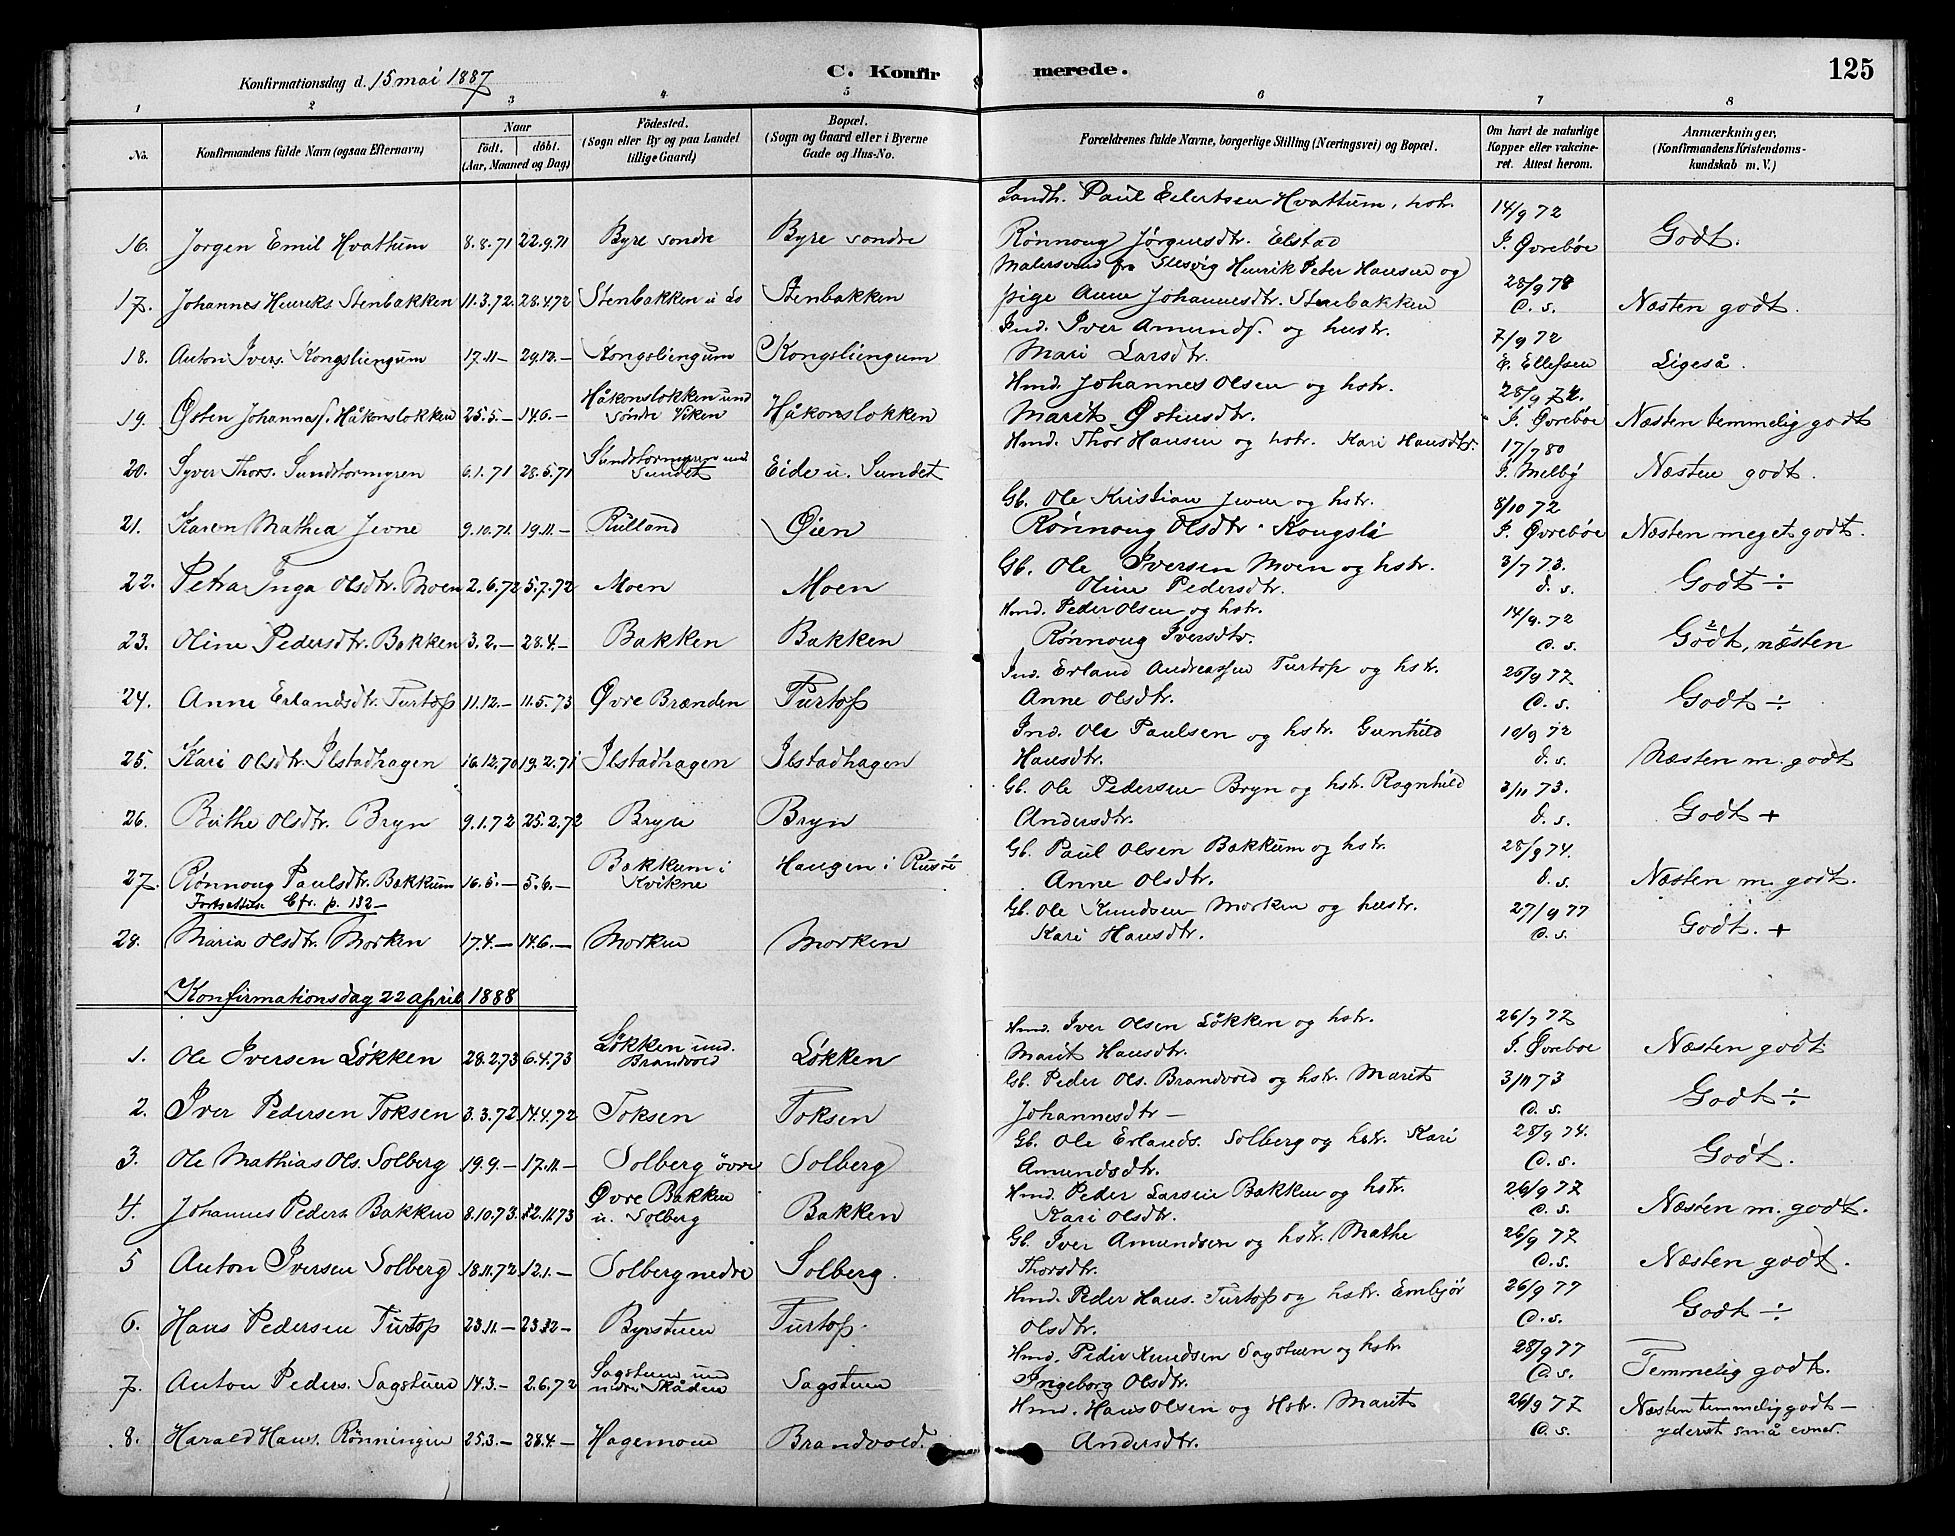 125
Konfirmationsdag d. 15 mai 1887
C. Konfirmerede.
1 2 3 4 5 6 7 8
No. Konfirmandens fulde Navn (ogsaa Efternavn) Naar födt. döbt. (Aar, Maaned og Dag) Födested. (Sogn eller By og paa Landet tillige Gaard) Bopæl. (Sogn og Gaard eller i Byerne Gade og Hus-No. Forældrenes fulde Navne, borgerlige Stilling (Næringsvei) og Bopæl. Om havt de naturlige Kopper eller vakcineret. Attest herom. Anmærkninger, (Konfirmandens Kristendomskundskab m. V.)
Landh. Paul Eilertsen Hvattum, hstr. 14/9 72
16. Jorgen Emil Hvattum 8.8.71 22.9.71 Byre sondre Byre sondre Rönnoug Jørgensdtr. Elstad J. Øvrebøe Godt.
Malersvend fra Slesvig Henrik Peter Hansen og 28/9 78
17. Johannes Henriks Stenbakken 11.3.72. 28.4.72 Stenbakken u. Lo Stenbakken pige Anne Johannesdtr. Stenbakken d. s. Næsten godt.
Ind. Iver Amunds. og hustr. 7/9 72
18. Anton Ivers. Kongsliengum 17.11- 29.12.- Kongsliengum Kongsliengum Mari Larsdtr. E. Ellefsen Ligeså.
Hmd. Johannes Olsen og hstr. 28/9 72.
19. Østen Johannesf. Håkonsløkken 25.5.- 14.6.- Håkonsløkken und söndre Viken Håkonsløkken Marit Østensdtr. J. Øvrebøe Næsten temmelig godt
Hmd. Thor Hansen og hstr. Kari Hansdtr. 17/7 80
20. Syver Thors. Sundstormyren 6.1.71 28.5.71 Sundstormyren und Sundet Eide u. Sundet J. Melby Næsten godt.
Gb. Ole Kristian Jevne og hstr. 8/10 72
21. Karen Mathea Jevne 9.10.71. 19.11.- Rulland Øien Rønnoug Olsdtr. Kongsli J. Øvrebøe Næsten meget godt.
Gb. Ole Iversen Moen og hstr. 3/7 73.
22. Petra Inga Olsdtr. Moen 2.6.72 5.7.72 Moen Moen Oline Pedersdtr. d. s. Godt ÷
Hmd. Peder Olsen og hstr. 14/9. 72
23. Oline Pedersdtr. Bakken 3.2.- 28.4.- Bakken Bakken Rønnoug Iversdtr. d. s. Godt, næsten
Ind. Erland Andreassen Turtop og hstr. 26/9 77
24. Anne Erlandsdtr. Turtop 11.12.- 11.5.73 Øvre Brænden Turtop Anne Olsdtr. d. s. Godt ÷
Ind. Ole Paulsen og hstr. Gunhild 10/9 72
25. Kari Olsdtr. Ilstadhagen 16.12.70 19.2.71 Ilstadhagen Ilstadhagen Hansdtr. d. s. Næsten m. godt
Gb. Ole Pedersen Bryn og hstr. Ragnhild 3/11 73.
26. Birthe Olsdtr. Bryn 9.1.72 25.2.72 Bryn Bryn Andersdtr. d. s. Godt +
Gb. Paul Olsen Bakkum og hstr. 28/9 74.
27. Rønnoug Paulsdtr. Bakkum 16.5.- 5.6.- Bakkum i Kvikne Haugen i Anne Olsdtr. d. s. Næsten m. godt.
Fortsættes Cfr. p. 132-
Gb. Ole Knudsen Morken og hustr. 27/9 77
28. Maria Olsdtr. Morken 17.4.- 14.6.- Morken Morken Kari Hansdtr. d. s. Godt. +
Konfirmationsdag 22 april 1888
Hmd. Iver Olsen Løkken og hstr. 26/7 77
1. Ole Iversen Løkken 28.2.73 6.4.73 Løkken und. Brandvold Løkken Marit Hansdtr. J. Øvrebøe Næsten godt
Gb. Peder Ols. Brandvold og hstr. Marit 3/11 73
2. Iver Pedersen Toksen 3.3.72 14.4.72 Toksen Toksen Johannesdtr - d. s. Godt ÷
Gb. Ole Erlands. Solberg og hstr. Kari 28/9 74.
3. Ole Mathias Ols. Solberg 19.9.- 17.11.- Solberg øvre Solberg Amundsdtr. d. s. Godt.
Hmd. Peder Larsen Bakken og hstr. 26/9 77
4. Johannes Peders. Bakken 8.10.73. 12.11.73 Øvre Bakken u. Solberg Bakken Kari Olsdtr. d. s. Næsten m. godt.
Gb. Iver Amundsen og hstr. Mathe 26/9 77
5 Anton Iversen Solberg 18.11.72 12.1.- Solberg nedre Solberg. Thorsdtr. d. s. Næsten godt.
Hmd. Peder Hans. Turtop og hstr. Embjør 26/9 77
6. Hans Pedersen Turtop 23.11.- 23.12- Byrstuen Turtop. Olsdtr. d. s. Godt ÷
Hmd. Peder Knudsen Sagstuen og hstr. 28/9 77
7. Anton Peders. Sagstuen 14.3.- 2.6.72 Sagstuen und nedre Skåden Sagstuen Ingeborg Olsdtr. d. s. Temmelig godt.
Hmd. Hans Olsen og Hstr. Marit 26/9 77 Næsten temmelig godt-
8. Harald Hans. Rönningen 25.3.- 28.4.- Hagemoen Brandvold. Andersdtr. d. s. yderst små evner.